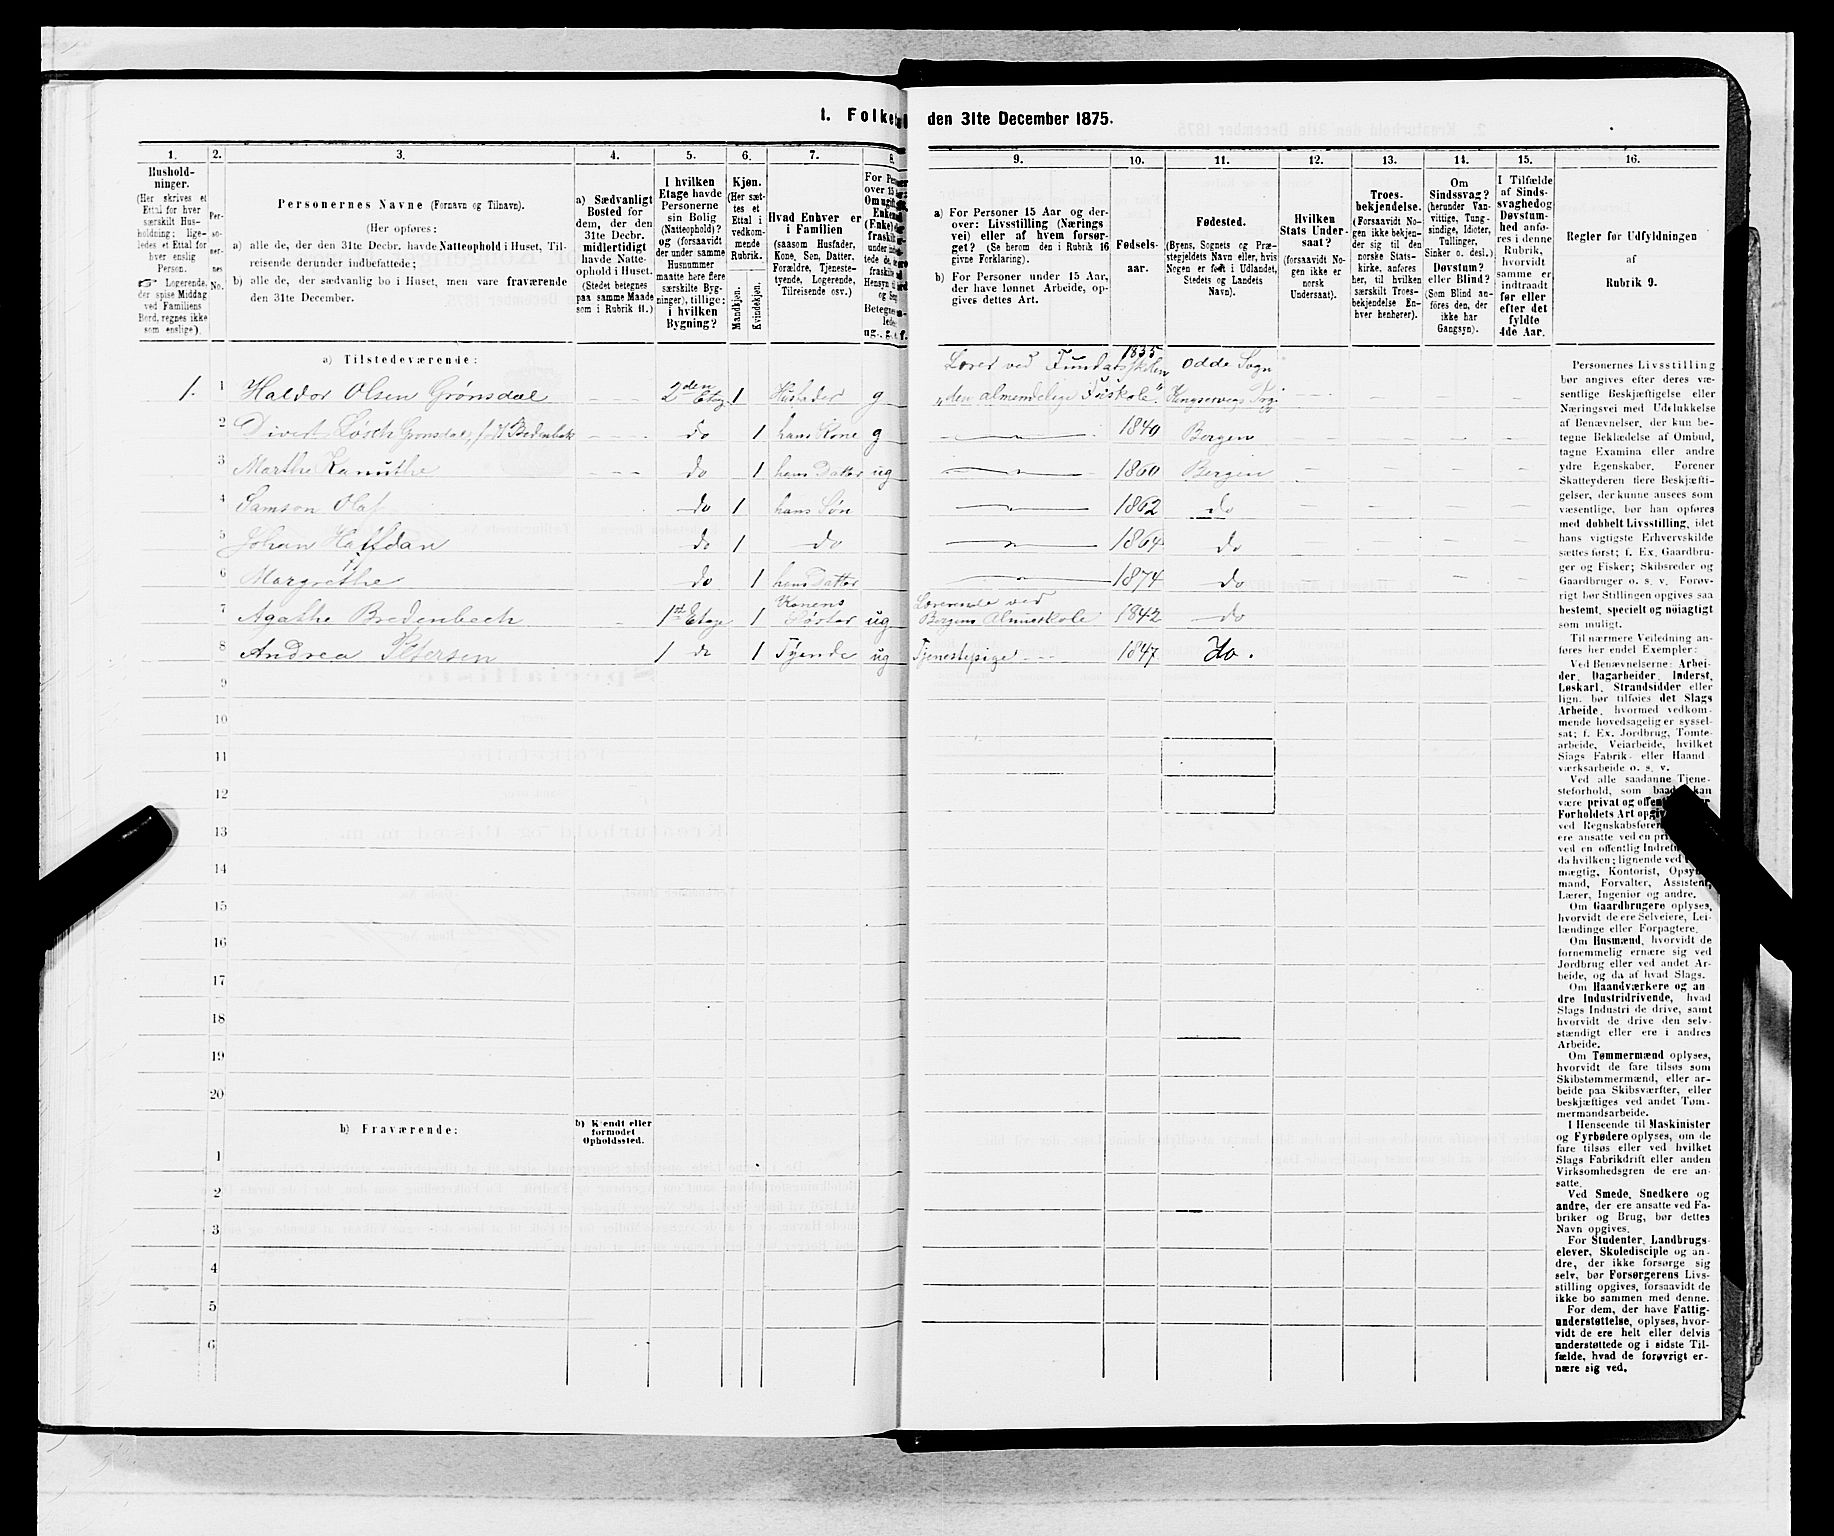 1. Folke
den 31te December 1875.
1.
2.
3.
4.
5.
6.
7.
8.
9.
10.
11.
12.
13.
14.
15.
16.
Hushold-
ninger.
(Her skrives et
Ettal for hver
særskilt Hus-
holdning; lige-
ledes et Ettal for
hver enslig
Person.
☞ Logerende,
der spise Middag
ved Familiens
Bord, regnes ikke
som enslige).
Per-
so-
ner-
nes
No.
Personernes Navne (Fornavn og Tilnavn).
(Her opføres:
a) alle de, der den 31te Decbr. havde Natteophold i Huset, Til-
reisende derunder indbefattede;
b) alle de, der sædvanlig bo i Huset, men vare fraværende
den 31te December.
a) Sædvanligt
Bosted for
dem, der den
31te Decbr.
midlertidigt
havde Natte-
ophold i Huset.
(Stedet betegnes
paa samme Maade
som i Rubrik 11.)
I hvilken
Etage havde
Personerne
sin Bolig
(Natteophold)?
og (forsaavidt
der under samme
Husnummer
maatte høre flere
særskilte Byg-
ninger), tillige:
i hvilken
Bygning?
Kjøn.
(Her sæt-
tes et
Ettal i
vedkom-
mende
Rubrik.
Mandkjøn.
Kvindekjøn.
Hvad Enhver er
i Familien
(saasom Husfader,
Kone, Søn, Datter,
Forældre, Tjeneste-
tyende, Logerende,
Tilreisende osv.)
For Pe
over 15
Om ugift
Enke
(Enke)
fraskilt
under ind
tede de,
fraskilt
Hensyn ti
og Se
Betegn
lede
ug., g., e., f.
a) For Personer 15 Aar og der-
over: Livsstilling (Nærings-
vei) eller af hvem forsør-
get? (Se herom den i Rubrik 16
givne Forklaring).
b) For Personer under 15 Aar,
der have lønnet Arbeide, op-
gives dettes Art.
Fødsels-
aar.
Fødested.
(Byens, Sognets og Præ-
stegjeldets Navn eller, hvis
Nogen er født i Udlandet,
Stedets og Landets
Navn).
Hvilken
Stats Under-
saat?
(forsaavidt No-
gen ikke er
norsk
Undersaat).
Troes-
bekjendelse.
(Forsaavidt No-
gen ikke bekjen-
der sig til den
norske Stats-
kirke, anføres
her, til hvilken
særskilt Troes-
bekjendelse En-
hver henhører).
Om
Sindssvag?
(herunder Van-
vittige, Tung-
sindige, Idioter,
Tullinger,
Sinker o. desl.)
Døvstum?
eller Blind?
(Som Blind an-
føres den, der
ikke har
Gangsyn).
I Tilfælde
af Sinds-
svaghed og
Døvstum-
hed anfø-
res i denne
Rubrik,
hvorvidt
samme er
indtraadt
før eller
efter det
fyldte
4de Aar.
Regler før Udfyldningen
af
Rubrik 9.
a) Tilstedeværende:
1. 1 Haldor Olsen Grønsdal 2den Etag 1 Husfader g Lærer ved Fundatsskolen "den almindelige Friskole". 1835 Odde Sogn
2 Divert Løsch Grønsdal, født Bredenbech do 1 hans Kone g 1840 Bergen
3 Marthe Kanuthe do 1 hans Datter ug 1860 Bergen
4 Samson Olaf do 1 hans Søn 1862 do
5 Johan Halfdan do 1 do 1864 do
6 Margrethe do 1 hans Datter 1874 do
7 Agathe Bredenbech 1st Etage 1 Konens Søster ug Lærerinde ved Bergens Almueskole 1842 do
8 Andrea Petersen 1 do 1 Tyende ug Tjenestepige 1847 do.
9
10
11
12
13
14
15
16
17
18
19
20
b) Fraværende:
b) Kjendt eller
formodet
Opholdssted.
1
2
3
4
5
6
Personernes Livsstilling
bør angives efter deres væ-
sentlige Beskjæftigelse eller
Næringsvei med Udelukkelse
af Benævnelser, der kun be-
tegne Beklædelse af Ombud,
tagne Examina eller andre
ydre Egenskaber. Forener
Skatteyderen flere Beskjæfti-
gelser, der kunne ansees som
væsentlige, bør han opføres
med dobbelt Livsstilling, idet
hans vigtigste Erhvervskilde
sættes først; f. Ex. Gaardbru-
ger og Fisker; Skibsreder og
Gaardbruger o. s. v. Forøv-
rigt bør Stillingen opgives saa
bestemt, specielt og nøiagtigt
som muligt.
Til nærmere Veiledning an-
føres her endel Exempler:
Ved Benævnelserne: Arbei-
der, Dagarbeider, Inderst,
Løskarl, Strandsidder eller
lign. bør tilføies det Slags
Arbeide, hvormed vedkom-
mende hovedsagelig er syssel-
sat; f. Ex. Jordbrug, Tomte-
arbeide, Veiarbeide, hvilket
Slags Fabrik- eller Haand-
værksarbeide o. s. v.
Ved alle saadanne Tjene-
steforhold, som baade kan
være privat og offent
Forholdets Art opgiv
ved Regnskabsføre
ere ansatte ved en pri
ved en offentlig Indret
da hvilken; lignende ved
mægtig, Kontorist, Opsyn
mand, Forvalter, Assistent,
Lærer, Ingeniør og andre.
Om Gaardbrugere oplyses,
hvorvidt de ere Selveiere, Lei-
lændinge eller Forpagtere.
Om Husmænd, hvorvidt de
fornemmelig ernære sig ved
Jordbrug eller ved andet Ar-
beide, og da af hvad Slags.
Om Haandværkere og an-
dre Industridrivende, hvad
Slags Industri de drive, samt
hvorvidt de drive den selv-
stændigt eller ere i andres
Arbeide.
Om Tømmermænd oplyses,
hvorvidt de fare tilsøs som
Skibstømmermænd, eller ar-
beide paa Skibsværfter, eller
beskjæftiges ved andet Tøm-
mermandsarbeide.
I Henseende til Maskinister
og Fyrbødere oplyses, om de
fare tilsøs eller ved hvilket
Slags Fabrikdrift eller anden
Virksomhedsgren de ere an-
satte.
Ved Smede, Snedkere og
andre, der ere ansatte ved Fa-
briker og Brug, bør dettes
Navn opgives.
For Studenter, Landbrugs-
elever, Skoledisciple og an-
dre, der ikke forsørge sig
selv, bør Forsørgerens Livs-
stilling opgives, forsaavidt de
ikke bo sammen med denne.
For dem, der have Fattig-
understøttelse, oplyses, hvor-
vidt de ere helt eller delvis
understøttede og i sidste Til-
fælde, hvad de forøvrigt er-
nære sig ved.